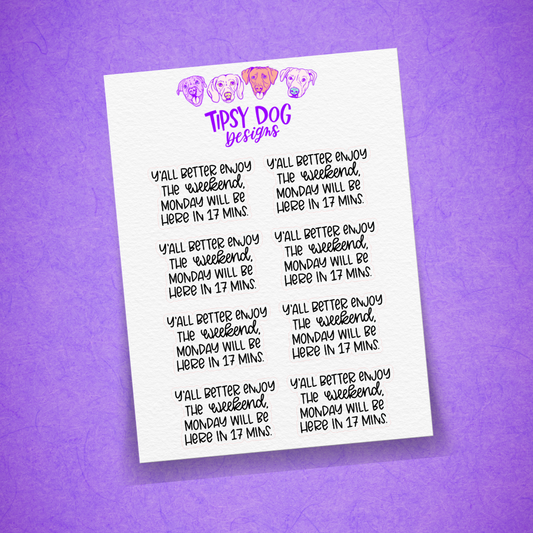 TIPSY DOG
Designs
Y'ALL BETTER ENJOY
THE weekend,
MONDAY WILL BE
HERE IN 17 MINS.
Y'ALL BETTER ENJOY
THE weekend,
MONDAY WILL BE
HERE IN 17 MINS.
Y'ALL BETTER ENJOY
THE weekend,
MONDAY WILL BE
HERE IN 17 MINS.
Y'ALL BETTER ENJOY
THE weekend,
MONDAY WILL BE
HERE IN 17 MINS.
Y'ALL BETTER ENJOY
THE weekend,
MONDAY WILL BE
HERE IN 17 MINS.
Y'ALL BETTER ENJOY
THE weekend,
MONDAY WILL BE
HERE IN 17 MINS.
Y'ALL BETTER ENJOY
THE weekend,
MONDAY WILL BE
HERE IN 17 MINS.
Y'ALL BETTER ENJOY
THE weekend,
MONDAY WILL BE
HERE IN 17 MINS.